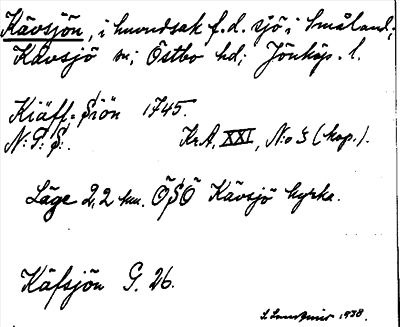 Kävsjön, i huvudsak f.d. sjö i Småland;
Kävsjö sn; Östbo hd; Jönköp. l.
Kiäff-Siön 1745.
N:P:S:. Kr.A. XXI, N:o 3 (kop.).
Läge 2,2 km. ÖSÖ Kävsjö kyrka.
Käfsjön G. 26.
1938.